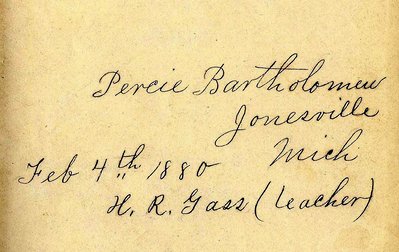 Percie Bartholomew
Jonesville
Mich
Feb 4th 1880
H. R. Gass (teacher)